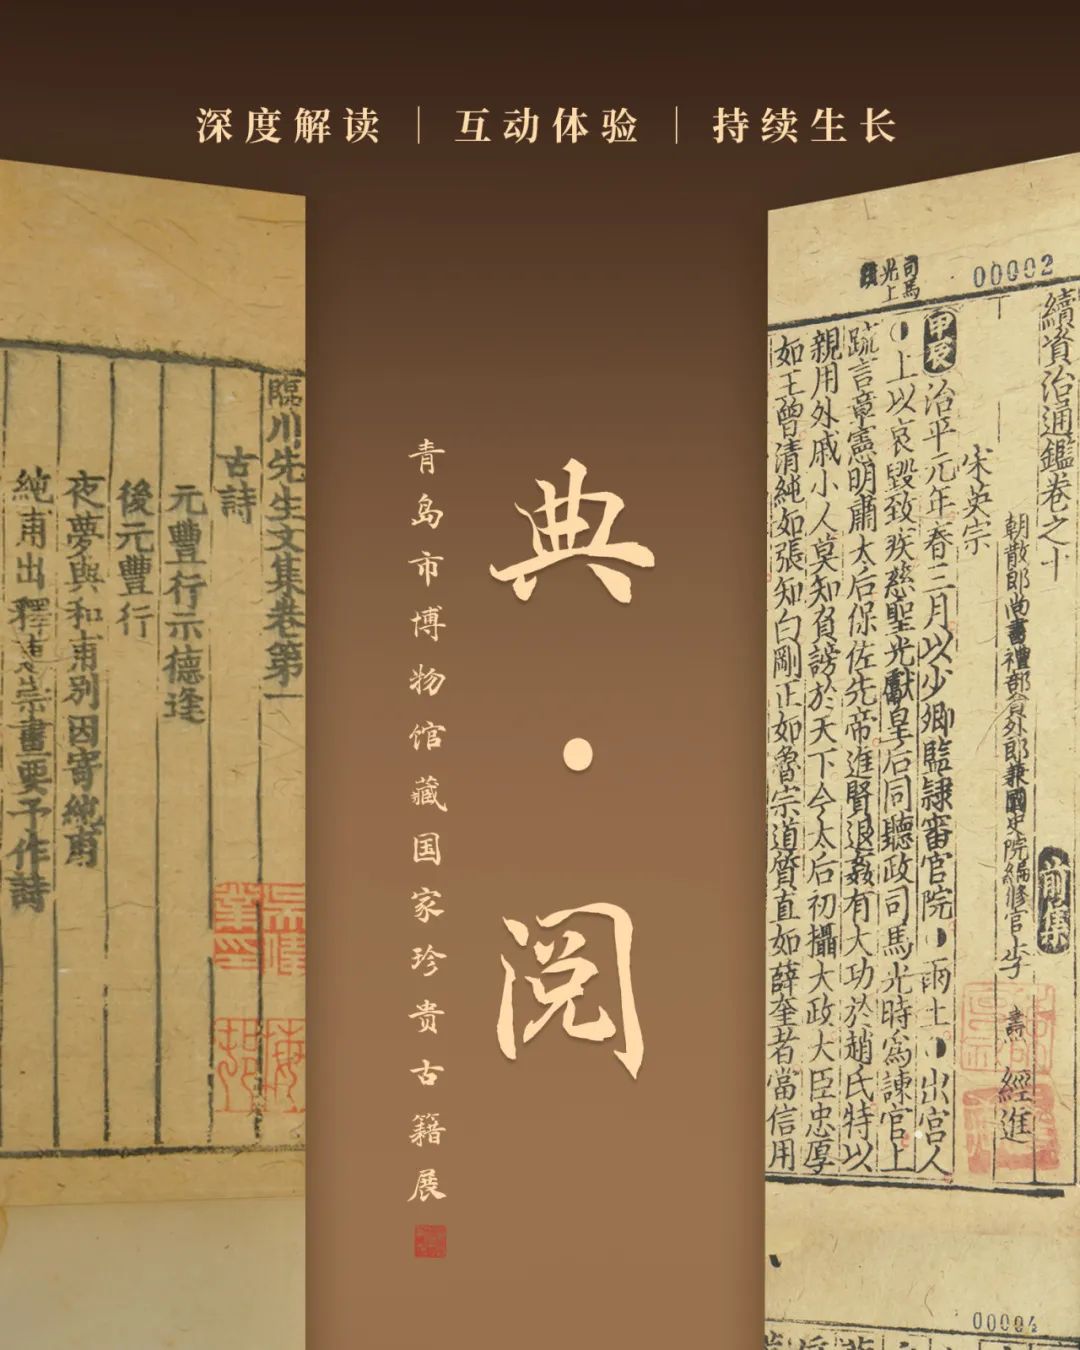 深度解读｜互动体验｜持续生长
典·阅
青岛市博物馆藏国家珍贵古籍展
臨川先生文集卷第一
古詩
元豐行示德逢
後元豐行
夜夢與和甫別因寄純甫
純甫出釋惠崇畫要予作詩
00002
司馬
光上
續資治通鑑卷之十
前集
朝散郎尚書禮部員外郎兼國史院編修官李燾經進
宋英宗
甲辰治平元年春三月以少卿監隷審官院雨土出宮人
上以哀毀致疾慈聖光獻皇后同聽政司馬光時爲諫官上
疏言章憲明肅太后保佐先帝進賢退姦有大功於趙氏特以
親用外戚小人莫知負謗於天下今太后初攝大政大臣忠厚
如王曾清純如張知白剛正如魯宗道質直如薛奎者當信用
00004